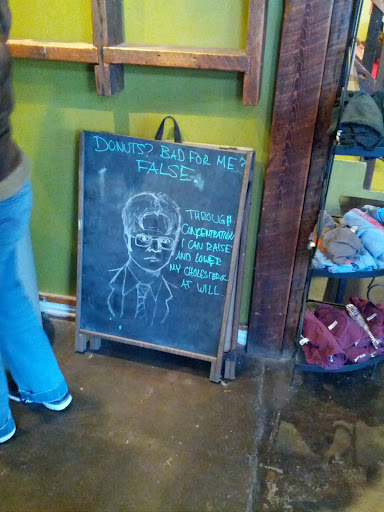 DONUTS? BAD FOR ME?
FALSE.
THROUGH
CONCENTRATION
I CAN RAISE
AND LOWER
MY CHOLESTEROL
AT WILL